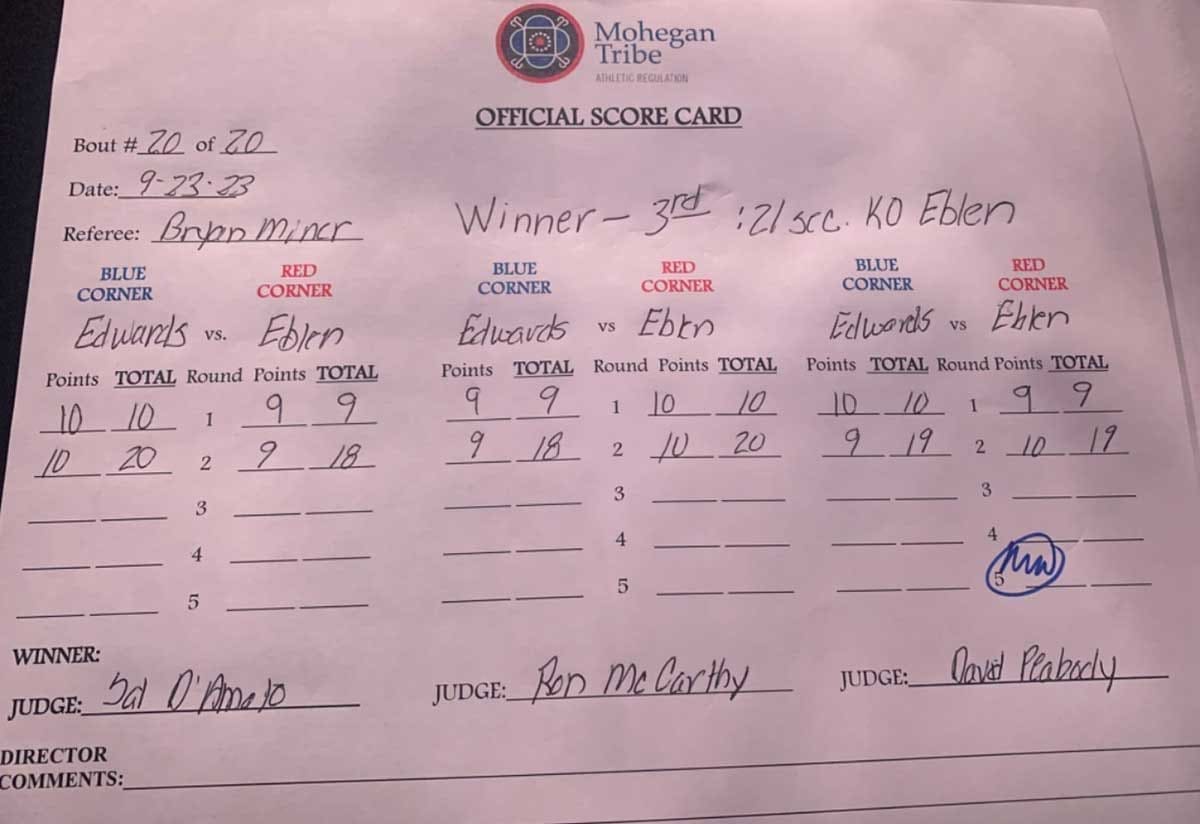 Mohegan
Tribe
ATHLETIC REGULATION
OFFICIAL SCORE CARD
Bout # 20 of 20
Date: 9-23-23
Referee: Bryan Miner
Winner - 3rd :21 sec. KO Eblen
BLUE CORNER RED CORNER BLUE CORNER RED CORNER BLUE CORNER RED CORNER
Edwards vs. Eblen Edwards vs Eblen Edwards vs Eblen
Points TOTAL Round Points TOTAL Points TOTAL Round Points TOTAL Points TOTAL Round Points TOTAL
10 10 1 9 9 9 9 1 10 10 10 10 1 9 9
10 20 2 9 18 9 18 2 10 20 9 19 2 10 19
3 3 3
4 4 4
5 5 5
WINNER:
JUDGE: Sal D'Amato JUDGE: Ron McCarthy JUDGE: David Peabody
DIRECTOR
COMMENTS: